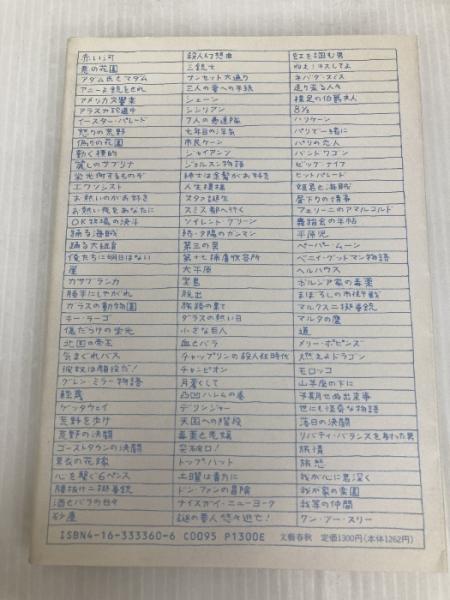 赤い河
悪の花園
アダム氏とマダム
アニーよ銃をとれ
アメリカ交響楽
アラスカ珍道中
イースター・パレード
怒りの荒野
偽りの花園
動く標的
麗しのサブリナ
栄光何するものぞ
エクソシスト
お熱いのがお好き
お熱い夜をあなたに
OK牧場の決斗
踊る海賊
踊る大紐育
俺たちに明日はない
崖
カサブランカ
勝手にしやがれ
ガラスの動物園
キー・ラーゴ
傷だらけの栄光
北国の帝王
気まぐれバス
彼奴は顔役だ!
グレン・ミラー物語
軽蔑
ゲッタウェイ
荒野を歩け
荒野の決闘
ゴーストタウンの決闘
黒衣の花嫁
心を繋ぐ6ペンス
腰抜け二挺拳銃
酒とバラの日々
砂塵
殺人幻想曲
三銃士
サンセット大通り
三人の妻への手紙
シェーン
シシリアン
7人の愚連隊
七年目の浮気
市民ケーン
ジャイアンツ
ジョルスン物語
紳士は金髪がお好き
人生模様
スタア誕生
スミス都へ行く
ソイレント・グリーン
続・夕陽のガンマン
第三の男
第十七捕虜収容所
大平原
宝島
脱出
旅路の果て
ダラスの熱い日
小さな巨人
血とバラ
チャップリンの殺人狂時代
チャンピオン
月蒼くして
凸凹ハレムの巻
デリンジャー
天国への階段
毒薬と老嬢
突破口!
トップ・ハット
土曜は貴方に
ドン・ファンの冒険
ナイスガイ・ニューヨーク
謎の要人悠々逃亡!
虹を掴む男
ねえ!キスしてよ
ネバダ・スミス
走り来る人々
裸足の伯爵夫人
8½
ハリケーン
パリで一緒に
パリの恋人
バンド・ワゴン
ビッグ・ナイフ
ヒット・パレード
姫君と海賊
昼下りの情事
フェリーニのアマルコルド
舞踏会の手帖
平原児
ペーパー・ムーン
ベニイ・グッドマン物語
ヘルハウス
ボルジア家の毒薬
まぼろしの市街戦
マルクス二挺拳銃
マルタの鷹
道
メリー・ポピンズ
燃えよドラゴン
モロッコ
山羊座の下に
予期せぬ出来事
世にも怪奇な物語
落日の決闘
リバティ・バランスを射った男
旅情
旅愁
我が心に君深く
我が家の楽園
我等の仲間
ワン・ツー・スリー
ISBN4-16-333360-6 C0095 P1300E 文藝春秋 定価1300円(本体1262円)